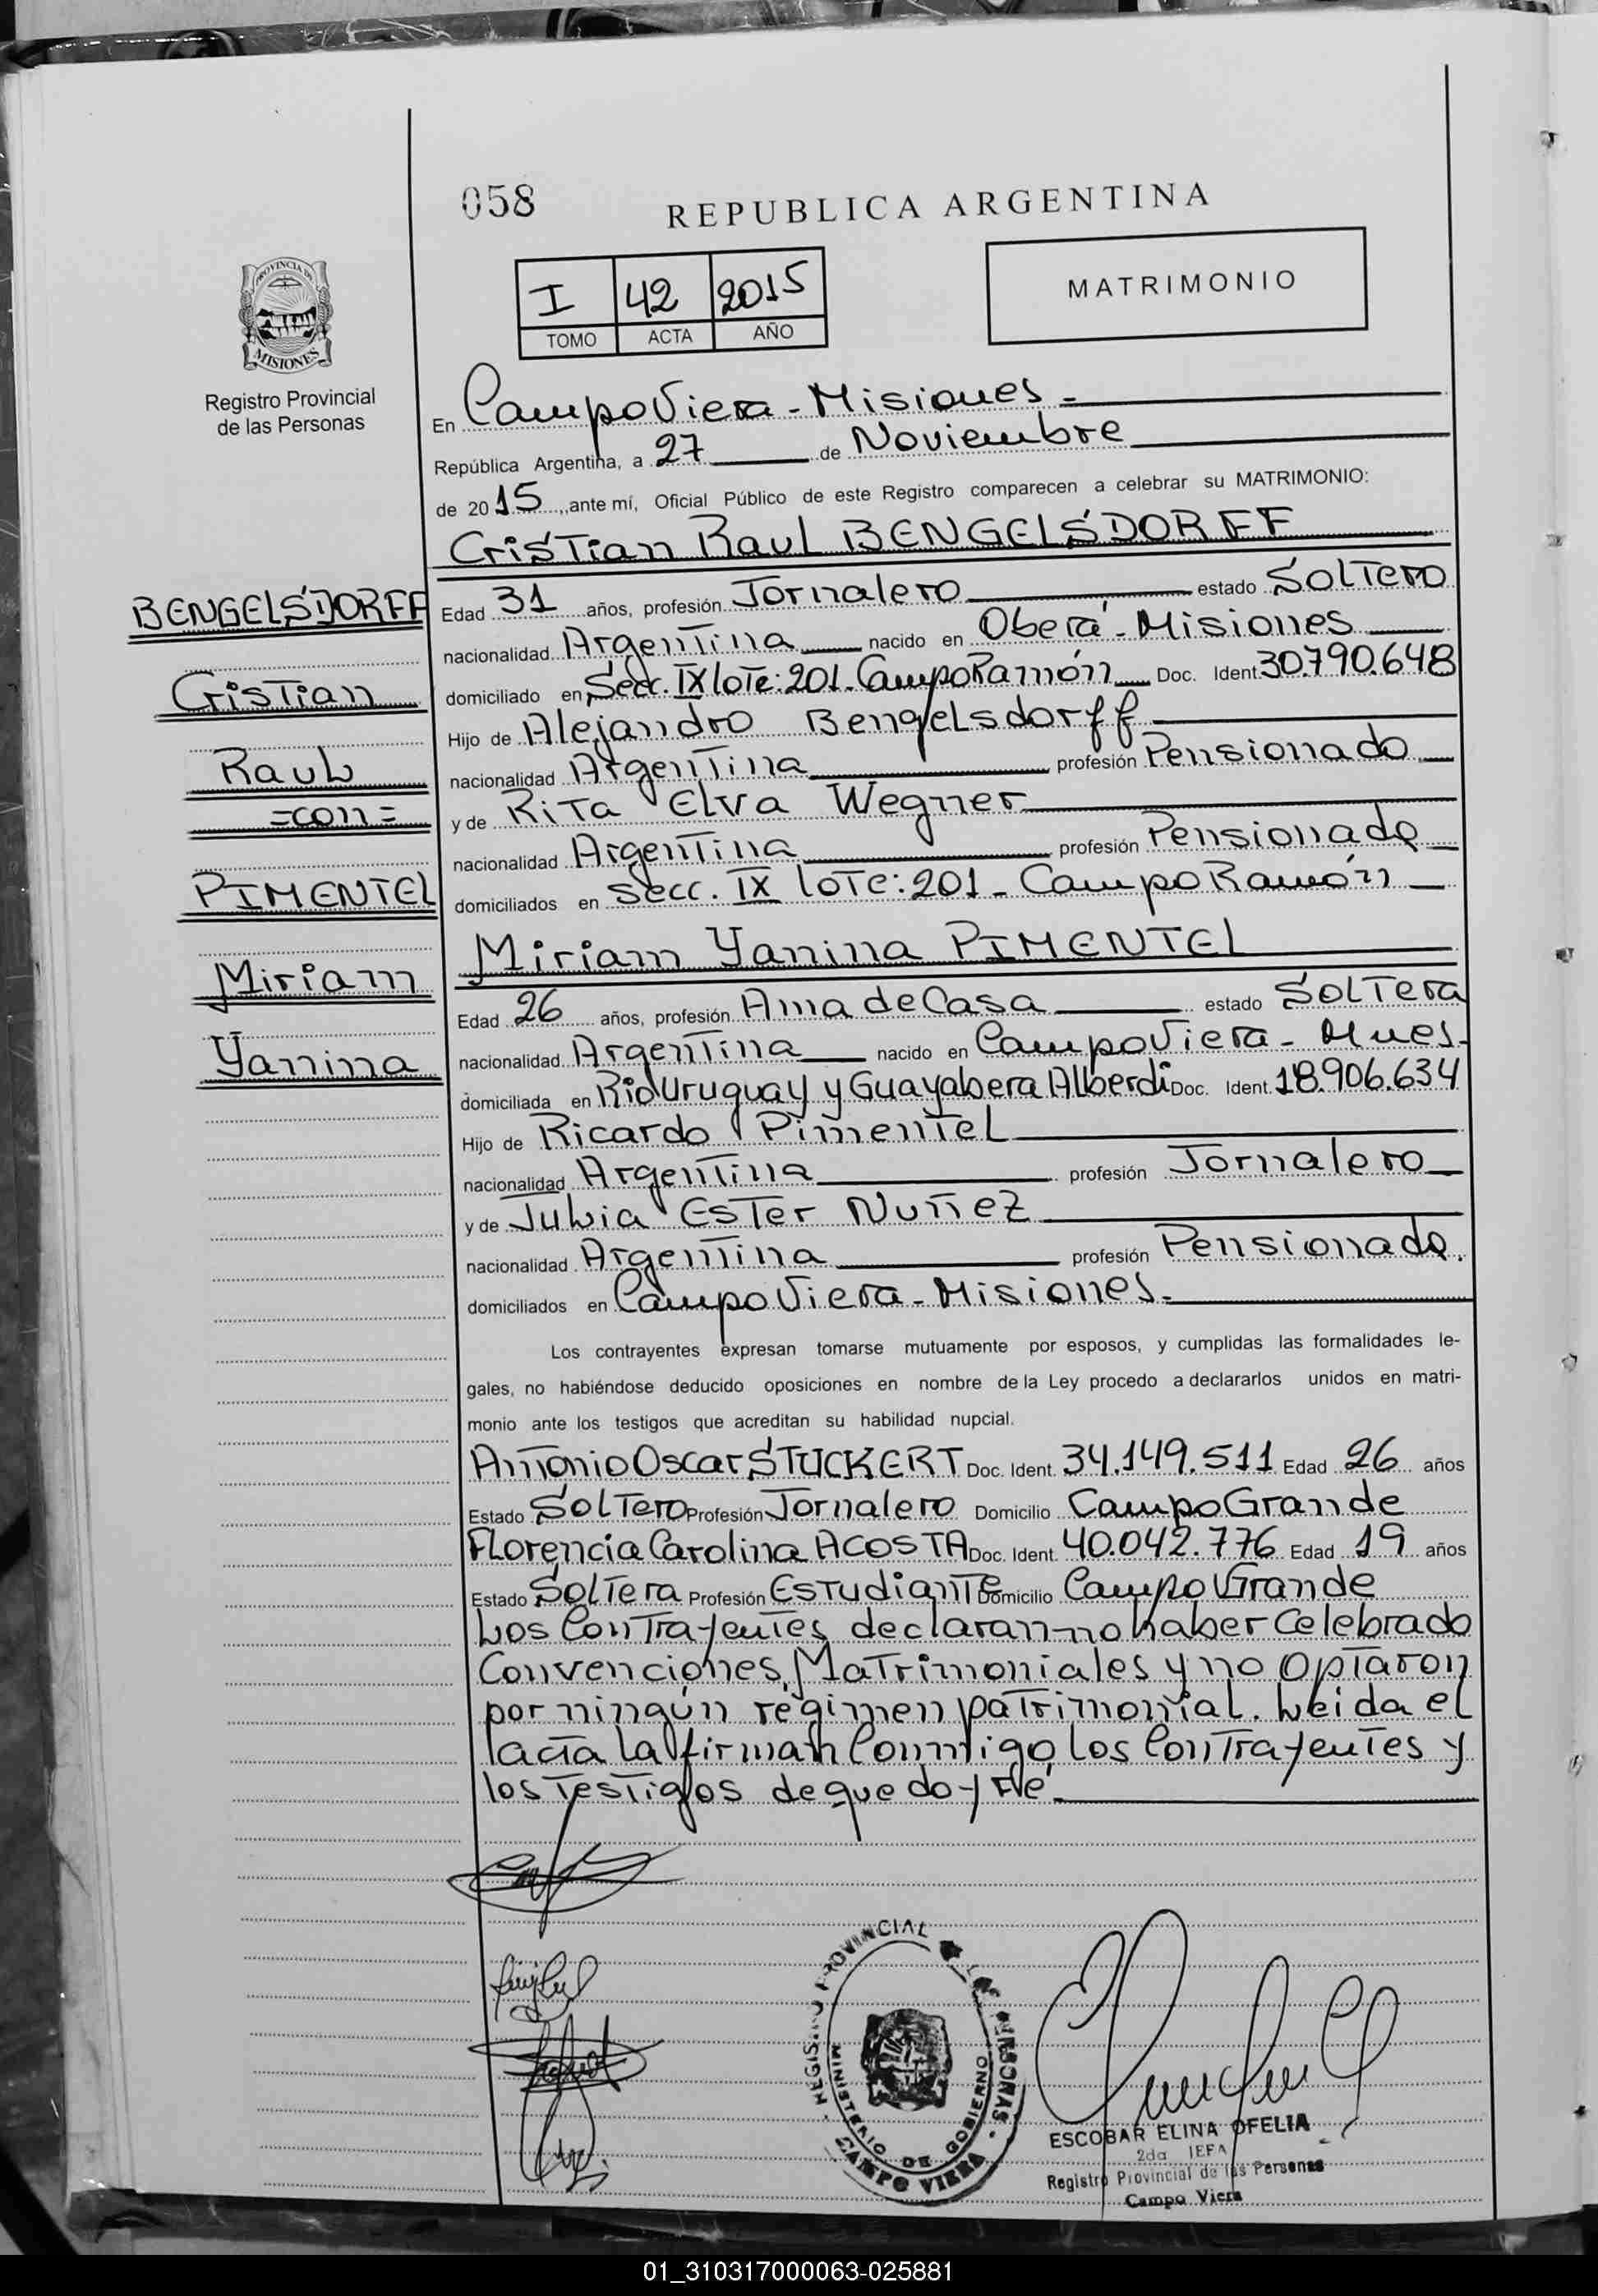 058
REPUBLICA ARGENTINA
I 42 2015
TOMO ACTA AÑO
MATRIMONIO
PROVINCIA DE
MISIONES
Registro Provincial
de las Personas
En Campo Viera - Misiones -
República Argentina, a 27 de Noviembre
de 2015, ante mí, Oficial Público de este Registro comparecen a celebrar su MATRIMONIO:
Cristian Raul BENGELSDORFF
BENGELSDORFF
Cristian
Raul
=con=
PIMENTEL
Miriam
Yanina
Edad 31 años, profesión Jornalero estado Soltero
nacionalidad Argentina nacido en Oberá - Misiones
domiciliado en Secc. IX lote: 201. Campo Ramón Doc. Ident. 30.790.648
Hijo de Alejandro Bengelsdorff
nacionalidad Argentina profesión Pensionado
y de Rita Elva Wegner
nacionalidad Argentina profesión Pensionada
domiciliados en Secc. IX lote: 201 - Campo Ramón
Miriam Yanina PIMENTEL
Edad 26 años, profesión Ama de Casa estado Soltera
nacionalidad Argentina nacido en Campo Viera - Mnes.
domiciliada en Rio Uruguay y Guayabera Alberdi Doc. Ident. 18.906.634
Hijo de Ricardo Pimentel
nacionalidad Argentina profesión Jornalero
y de Julia Ester Nuñez
nacionalidad Argentina profesión Pensionada.
domiciliados en Campo Viera - Misiones.
Los contrayentes expresan tomarse mutuamente por esposos, y cumplidas las formalidades le-
gales, no habiéndose deducido oposiciones en nombre de la Ley procedo a declararlos unidos en matri-
monio ante los testigos que acreditan su habilidad nupcial.
Antonio Oscar STUCKERT Doc. Ident. 34.149.511 Edad 26 años
Estado Soltero Profesión Jornalero Domicilio Campo Grande
Florencia Carolina ACOSTA Doc. Ident. 40.042.776 Edad 19 años
Estado Soltera Profesión Estudiante Domicilio Campo Grande
Los Contrayentes declaran no haber celebrado
Convenciones Matrimoniales y no optaron
por ningún régimen patrimonial. Leida el
acta la firman Conmigo los Contrayentes y
los testigos de que doy Fé
REGISTRO PROVINCIAL DE LAS PERSONAS
MINISTERIO DE GOBIERNO
CAMPO VIERA
ESCOBAR ELINA OFELIA
2da JEFA
Registro Provincial de las Personas
Campo Viera
01_310317000063-025881